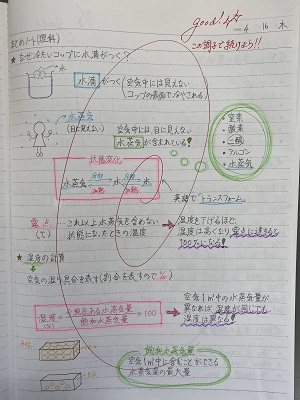 good!
4 16 木
この調子で続けよう!!
まとめノート(理科)
★なぜ冷たいコップに水滴がつく?
水
水滴がつく
空気中には見えない
コップの表面で冷やされる
水蒸気
(目に見えない)
空気中には、目に見えない
水蒸気が含まれている!
・窒素
・酸素
・アルゴン
・水蒸気
状態変化
水蒸気 水 氷
英語で「トランスフォーム」
露点
(℃)
これ以上水蒸気を含めない
状態になったときの温度
温度を下げるほど、
湿度は高くなり露点に達すると
100%になる!
★湿度の計算
空気の湿り具合を表す(割合を表すので%)
湿度 = 現在ある水蒸気量 / 飽和水蒸気量 × 100
(%)
空気1m³中の水蒸気量が
異なれば、温度が同じでも
湿度は異なる!
飽和水蒸気量
空気1m³中に含むことができる
水蒸気の最大量